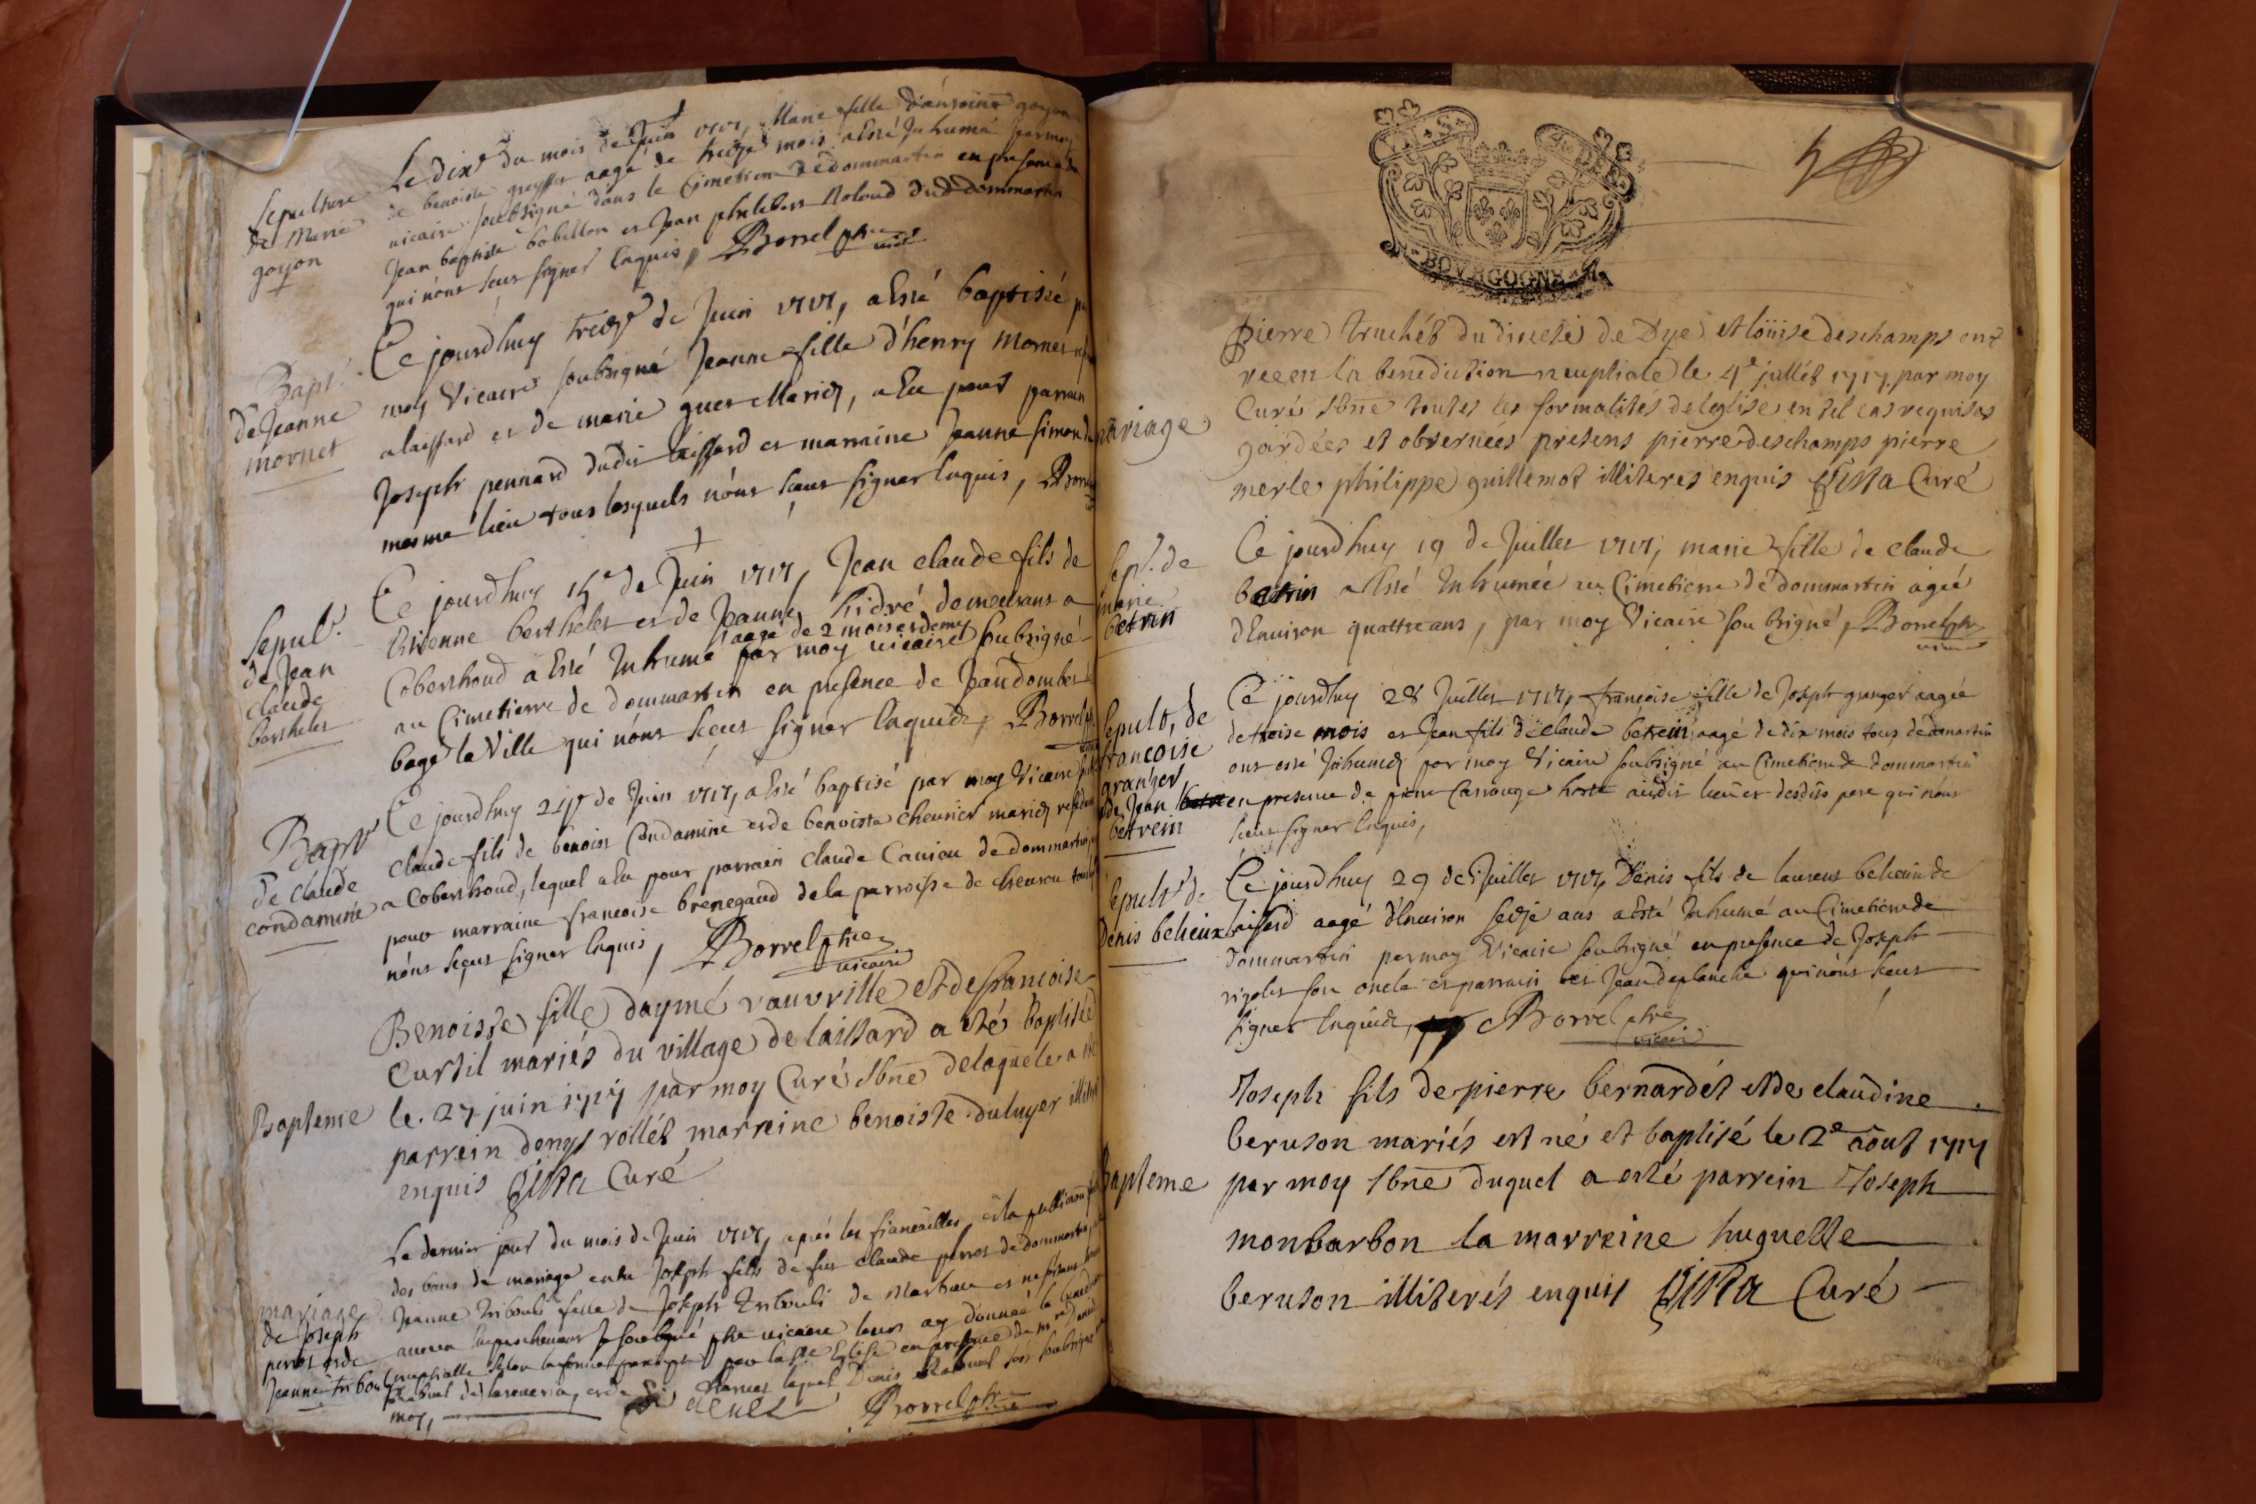 Sepulture
de Marie
goyon
Le dix.e du mois de Juin 1717, Marie fille d'antoine goyon
de benoiste aagé de treize mois a Esté Inhumé par moy
vicaire soubsigné dans le Cimetiere de dommartin en presence de
Jean baptiste babillon et Jean philibert Roland dud dommartin
qui n'ont sceus signer Enquis, Borrel ptre
vicaire
Bapt.
de Jeanne
mornet
Ce jourdhuy treize de Juin 1717, a Esté baptisé par
moy Vicaire soubsigné Jeanne fille d'henry Mornet
a laissard et de marie Mariez, a Eu pour parrain
Joseph pennard dudit laissard et marraine Jeanne simon du
mesme lieu tous lesquels n'ont sceus signer Enquis, Borrel
Sepul.
de Jean
claude
berthelet
Ce jourdhuy 15e de Juin 1717, Jean claude fils de
Estienne berthelet et de Jeanne demeurans a
aagé de 2 mois et demy
Coberthoud a Esté Inhumé par moy vicaire soubsigné
au Cimetierre de dommartin en presence de Jean dombey
bagé la Ville qui n'ont sceus signer Enquids, Borrel ptre
Bapt
de claude
condamine
Ce jourdhuy 24e de Juin 1717, a Esté baptisé par moy Vicaire
claude fils de benoist Condamine et de benoiste chevrier mariez
a Coberthoud, lequel a Eu pour parrain claude Caniou de dommartin
pour marraine francoise brenegaud de la parroisse de
n'ont sceus signer Enquis, Borrel ptre
vicaire
Bapteme
Benoiste fille daymé vauvrille et de francoise
Curtil mariés du village de laissard a été Baptisée
le 27 juin 1717 par moy Curé sbné delaquele a été
parrein denys rollet marreine benoiste duluyer illiterés
enquis Curé
mariage
de Joseph
perret et de
Jeanne tribouli
Le dernier jour du mois de Juin 1717, apres les fiancailles, et la publication
des bans de mariage entre Joseph fils de feu claude perret de dommartin
Jeanne tribouli fille de Joseph tribouli de Marbou et ne s'estant trouvé
aucun Empeschement Je soubsigné ptre vicaire leurs ay donnée la benediction
nuptialle selon la forme par la ste Eglise en presence de
lequel Denis s'est soubsigné
moy, Borrel ptre
BOVRGOGNE
5
mariage
Pierre truchet du diocese de Dye et loüise deschamps ont
receu la benediction nuptiale le 4e jullet 1717, par moy
Curé sbné toutes les formalités de leglise en tel cas requises
gardées et observées presens pierre deschamps pierre
merle philippe guillemot illiteres enquis Curé
Sep. de
marie
betrin
Ce jourdhuy 19 de Juillet 1717, marie fille de claude
betrin a Esté Inhumée au Cimetierre de dommartin ageé
d'Environ quattre ans, par moy Vicaire soubsigné, Borrel ptre
vicaire
Sepult, de
francoise
granger
et de Jean
betrein
Ce jourdhuy 28 Juillet 1717, francoise fille de Joseph granger aagée
de troise mois et Jean fils de claude betrein aagé de dix mois tous de domartin
ont esté Inhumés par moy Vicaire soubsigné au Cimetiere de dommartin
en presence de pierre Carrouge hoste audit lieu et desdits pere qui n'ont
sceus signer Enquis,
Sepult de
Denis belieux
Ce jourdhuy 29 de Juillet 1717, Denis fils de laurent belieu de
laissard aagé d'Environ seize ans a Esté Inhumé au Cimetiere de
dommartin par moy Vicaire soubsigné en presence de Joseph
rigolet son oncle et parrain et Jean deplanche qui n'ont sceus
signer Enquids, Borrel ptre
vicaire
Bapteme
Joseph fils de pierre bernardet et de claudine
beruson mariés est né et baptisé le 2e aout 1717
par moy sbné duquel a esté parrein Joseph
monbarbon la marreine huguette
beruson illiterés enquis Curé